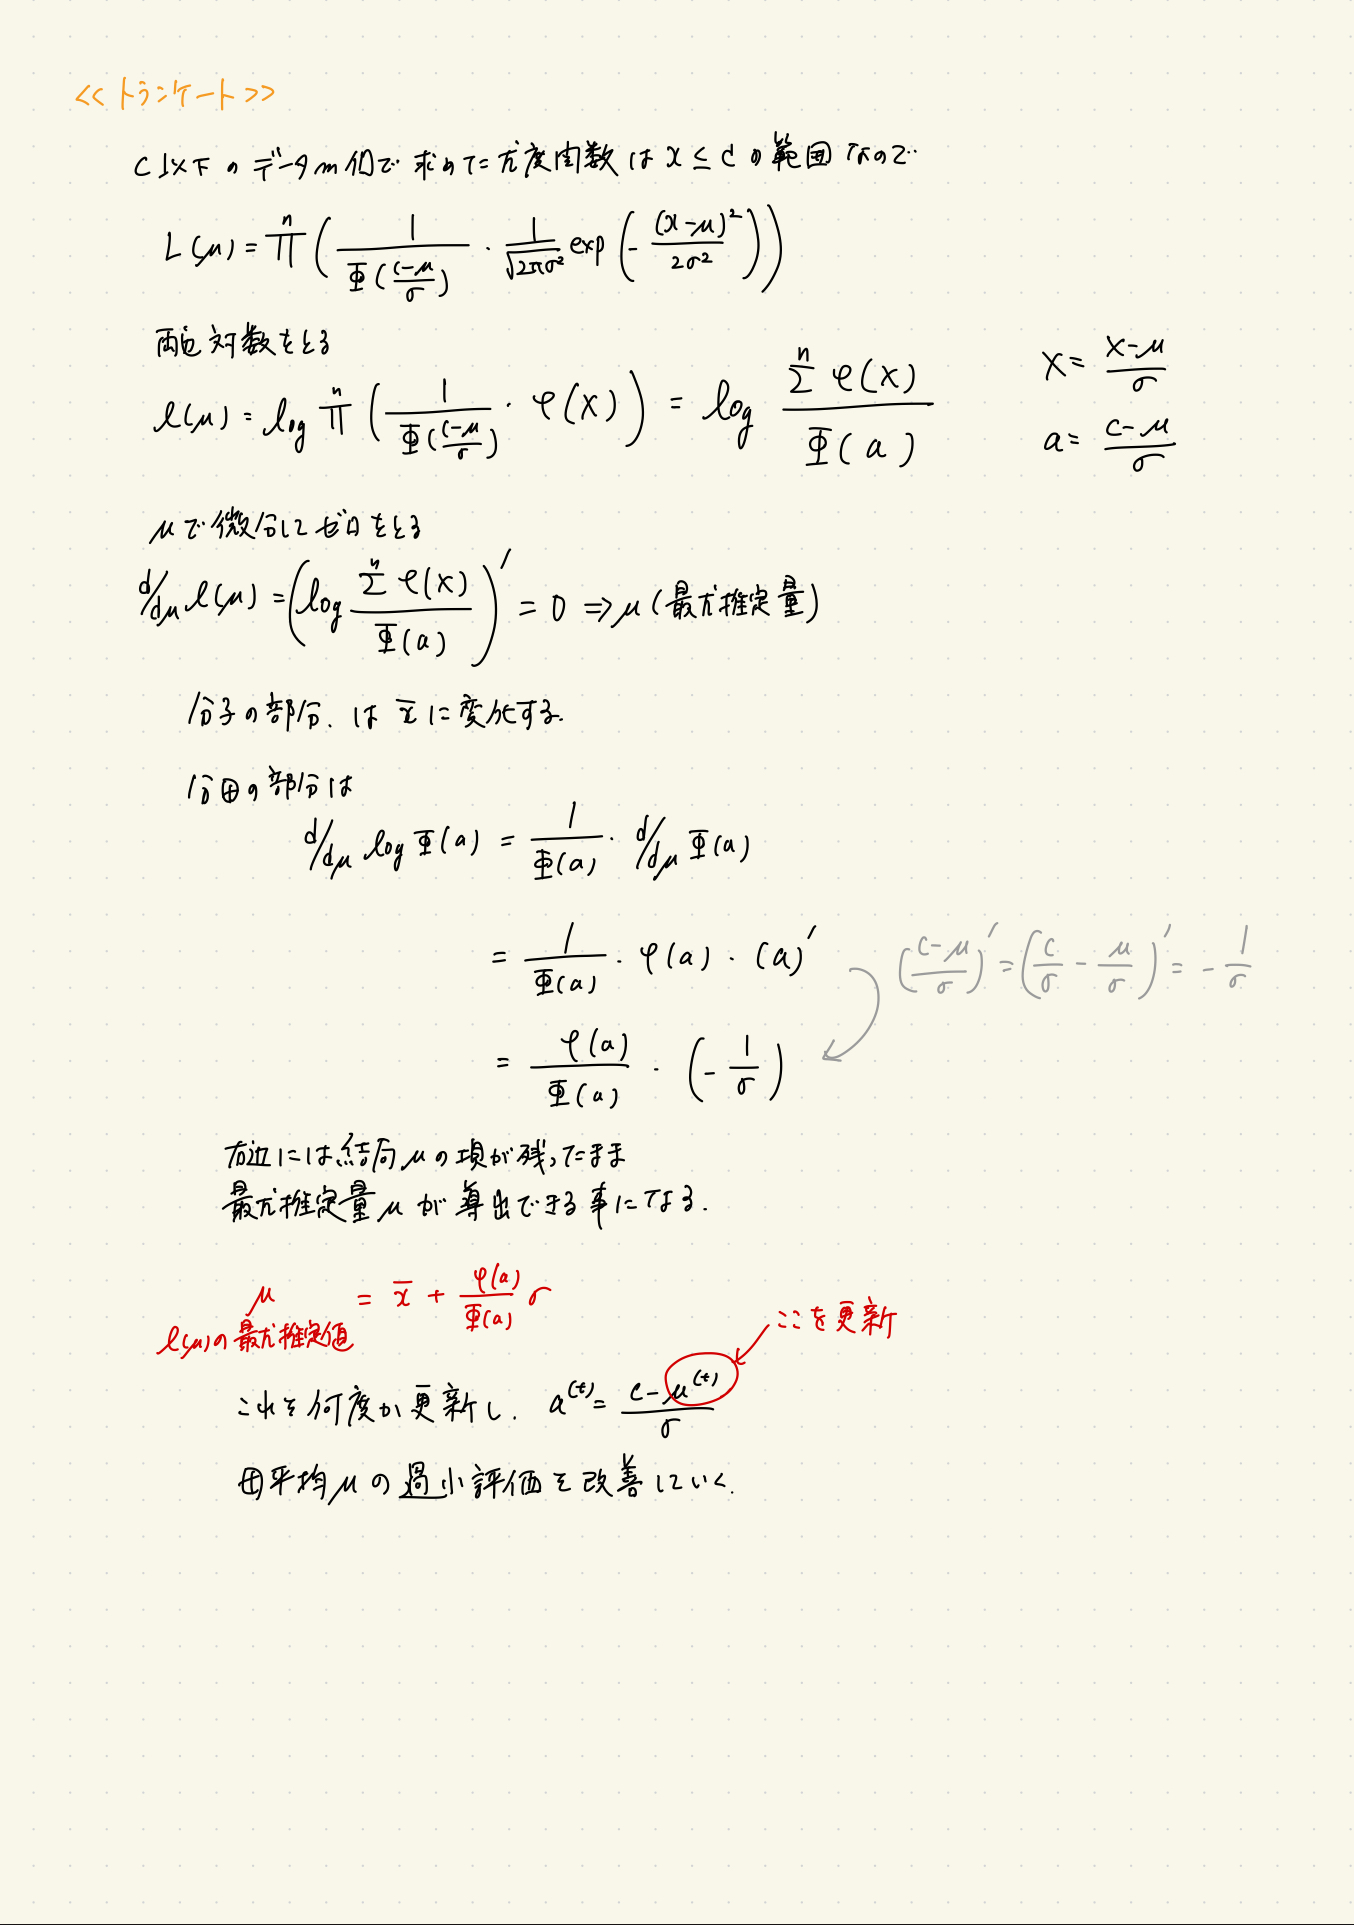 <<トランケート>>
C以下のデータm個で求めた尤度関数は x ≤ c の範囲なので
L(μ) = Π^n ( 1/Φ((c-μ)/σ) · 1/√(2πσ²) exp( - (x-μ)²/2σ² ) )
両辺対数をとる
l(μ) = log Π^n ( 1/Φ((c-μ)/σ) · φ(X) ) = log Σ^n φ(X) / Φ(a)
X = (x-μ)/σ
a = (c-μ)/σ
μで微分してゼロをとる
d/dμ l(μ) = ( log Σ^n φ(X) / Φ(a) )′ = 0 ⇒ μ (最尤推定量)
分子の部分、は x̄ に変化する.
分母の部分は
d/dμ log Φ(a) = 1/Φ(a) · d/dμ Φ(a)
= 1/Φ(a) · φ(a) · (a)′
((c-μ)/σ)′ = (c/σ - μ/σ)′ = - 1/σ
= φ(a)/Φ(a) · (- 1/σ)
右辺には結局μの項が残ったまま
最尤推定量μが導出できる事になる.
μ = x̄ + φ(a)/Φ(a) σ
l(μ)の最尤推定値
ここを更新
これを何度か更新し、 a^(t) = (c-μ^(t))/σ
母平均μの過小評価を改善していく.